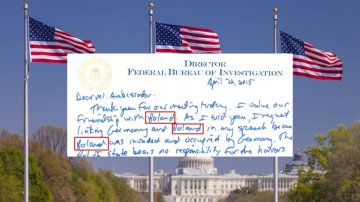 DIRECTOR
FEDERAL BUREAU OF INVESTIGATION
April 22, 2015
Dear Mr. Ambassador -
Thank you for our meeting today. I value our
friendship with Poland. As I told you, I regret
linking Germany and Poland in my speech because
Poland was invaded and occupied by Germany. The
Polish State bears no responsibility for the horrors